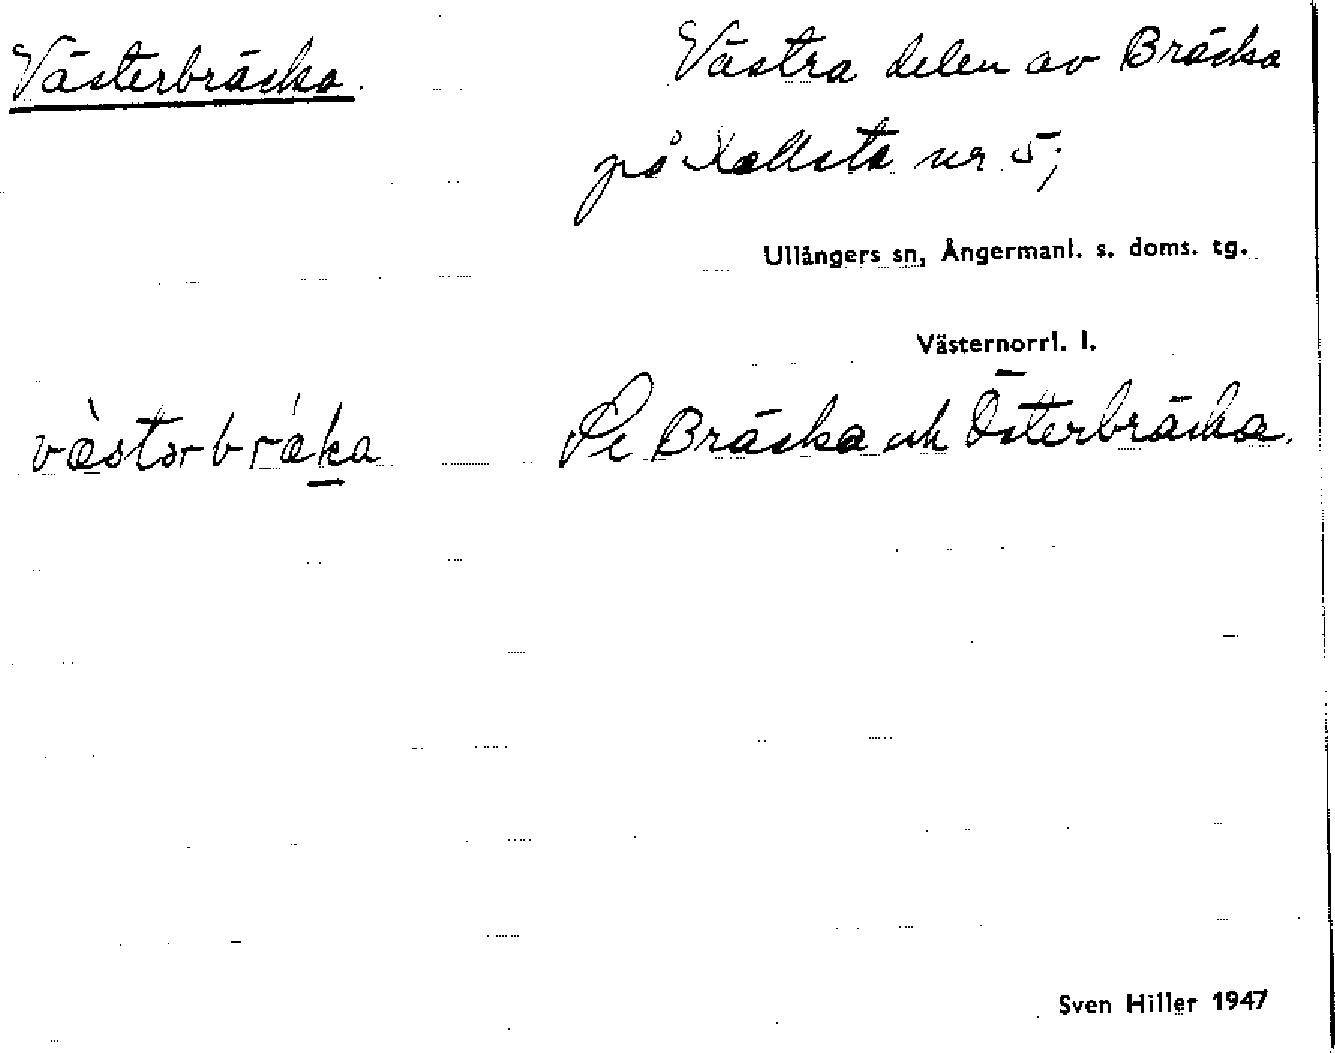 Västerbräcka.
Västra delen av Bräcka
på Xallsta nr 5;
Ullångers sn, Ångermanl. s. doms. tg.
Västernorrl. l.
vä̀stərbrǽka
Se Bräcka och Österbräcka.
Sven Hiller 1947